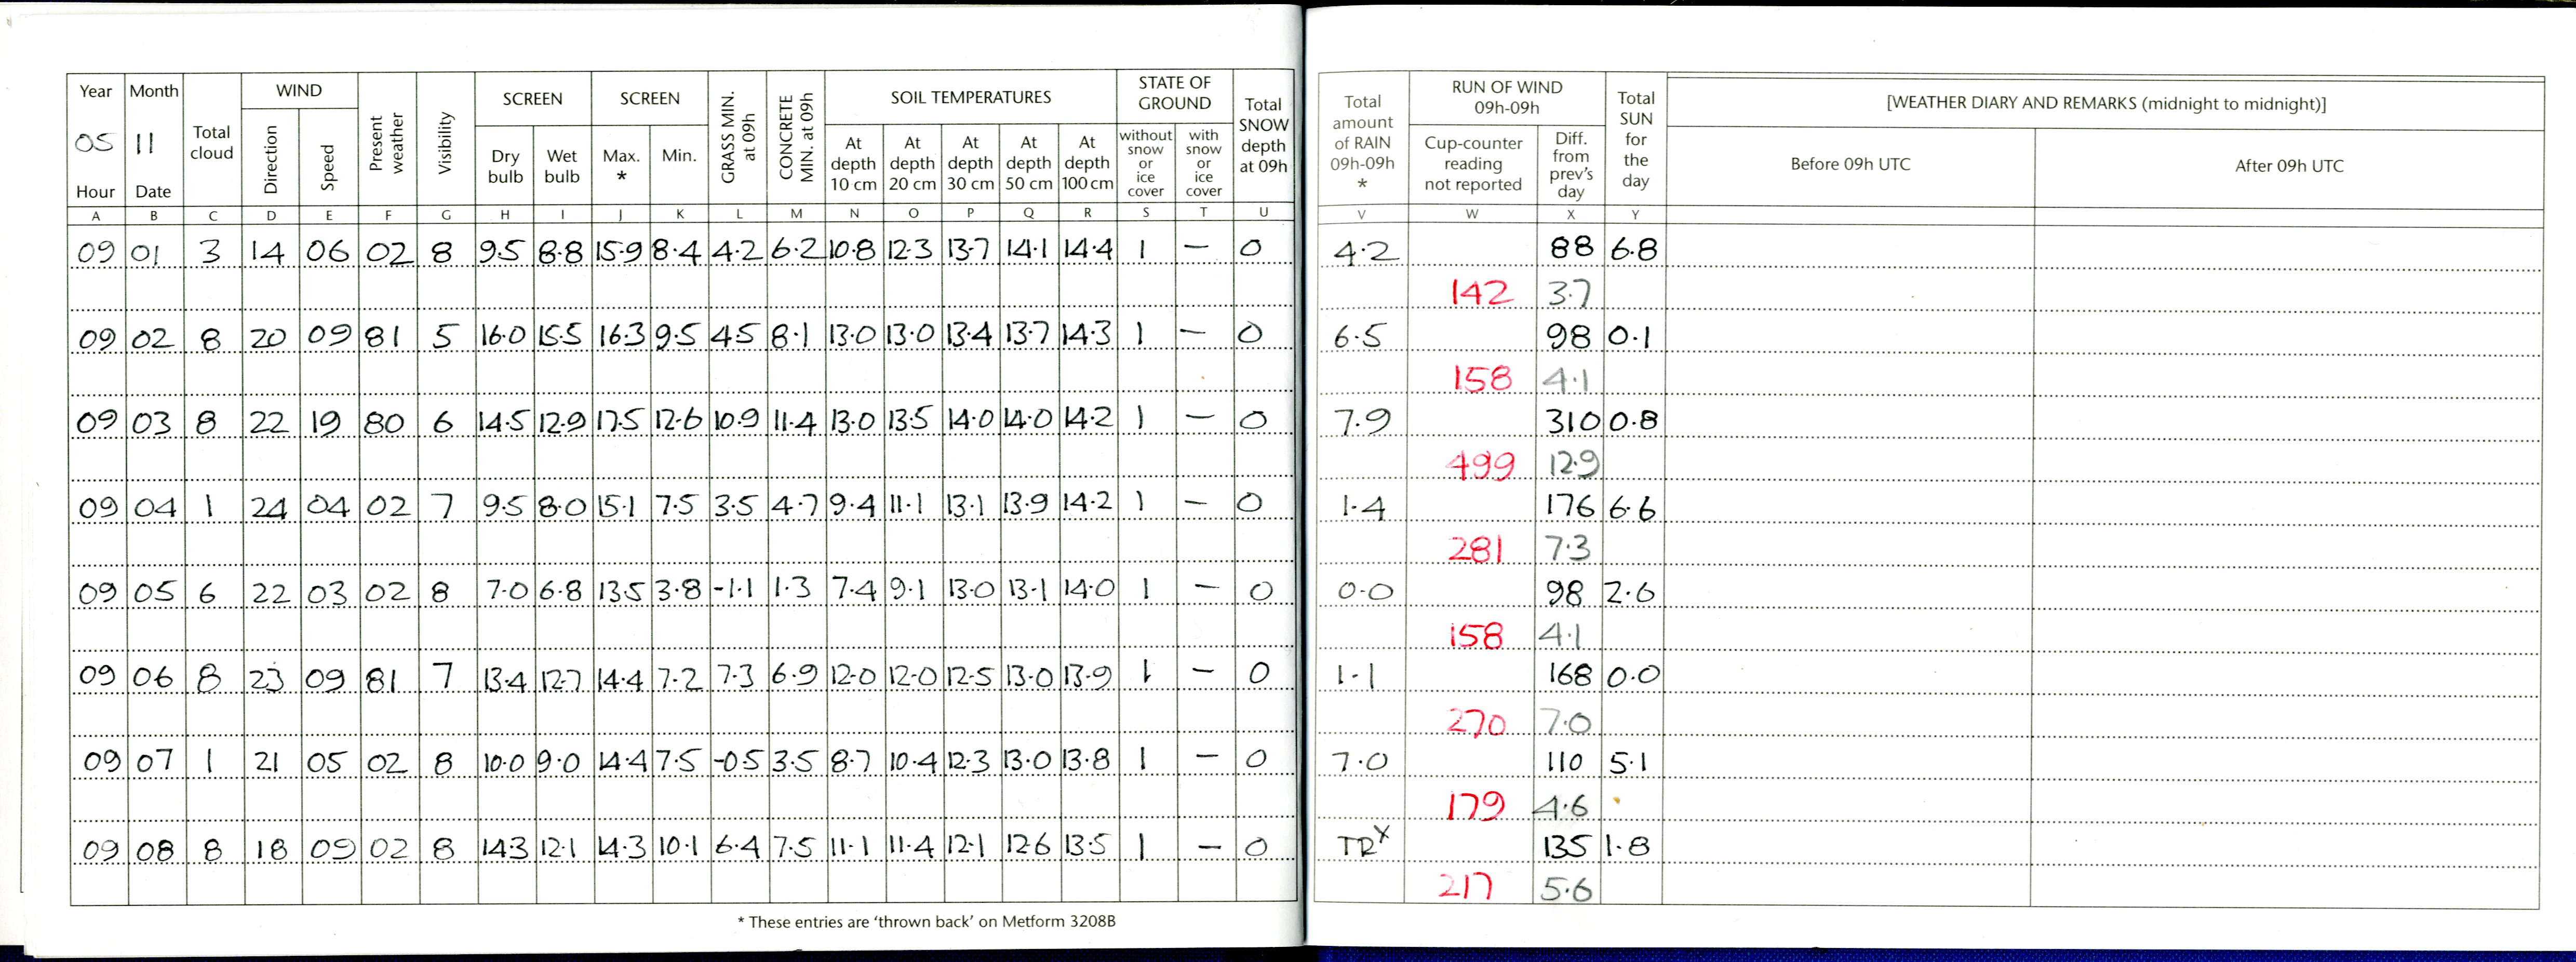 Year Month WIND SCREEN SCREEN SOIL TEMPERATURES STATE OF GROUND RUN OF WIND 09h-09h
05 11 Total cloud Direction Speed Present weather Visibility Dry bulb Wet bulb Max. * Min. GRASS MIN. at 09h CONCRETE MIN. at 09h At depth 10 cm At depth 20 cm At depth 30 cm At depth 50 cm At depth 100 cm without snow or ice cover with snow or ice cover Total SNOW depth at 09h Total amount of RAIN 09h-09h * Cup-counter reading not reported Diff. from prev's day Total SUN for the day [WEATHER DIARY AND REMARKS (midnight to midnight)]
Hour Date Before 09h UTC After 09h UTC
A B C D E F G H I J K L M N O P Q R S T U V W X Y
09 01 3 14 06 02 8 9.5 8.8 15.9 8.4 4.2 6.2 10.8 12.3 13.7 14.1 14.4 1 — 0 4.2 88 6.8
142 3.7
09 02 8 20 09 81 5 16.0 15.5 16.3 9.5 4.5 8.1 13.0 13.0 13.4 13.7 14.3 1 — 0 6.5 98 0.1
158 4.1
09 03 8 22 19 80 6 14.5 12.9 17.5 12.6 10.9 11.4 13.0 13.5 14.0 14.0 14.2 1 — 0 7.9 310 0.8
499 12.9
09 04 1 24 04 02 7 9.5 8.0 15.1 7.5 3.5 4.7 9.4 11.1 13.1 13.9 14.2 1 — 0 1.4 176 6.6
281 7.3
09 05 6 22 03 02 8 7.0 6.8 13.5 3.8 -1.1 1.3 7.4 9.1 13.0 13.1 14.0 1 — 0 0.0 98 2.6
158 4.1
09 06 8 23 09 81 7 13.4 12.7 14.4 7.2 7.3 6.9 12.0 12.0 12.5 13.0 13.9 1 — 0 1.1 168 0.0
270 7.0
09 07 1 21 05 02 8 10.0 9.0 14.4 7.5 -0.5 3.5 8.7 10.4 12.3 13.0 13.8 1 — 0 7.0 110 5.1
179 4.6
09 08 8 18 09 02 8 14.3 12.1 14.3 10.1 6.4 7.5 11.1 11.4 12.1 12.6 13.5 1 — 0 TRx 135 1.8
217 5.6
* These entries are 'thrown back' on Metform 3208B